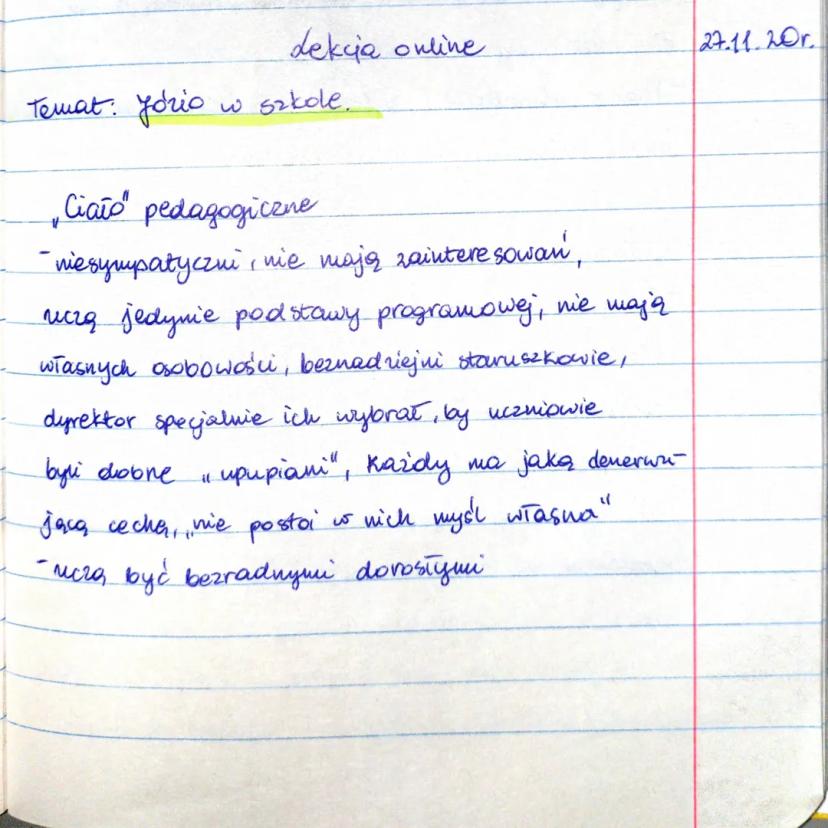 Lekcja online 27.11.20r.
Temat: Józio w szkole.
„Ciało" pedagogiczne
- niesympatyczni, nie mają zainteresowań,
uczą jedynie podstawy programowej, nie mają
własnych osobowości, beznadziejni staruszkowie,
dyrektor specjalnie ich wybrał, by uczniowie
byli dobne „upupiani", każdy ma jaką denerwu-
jącą cechę, „nie postoi w nich myśl własna"
- uczą być bezradnymi dorosłymi